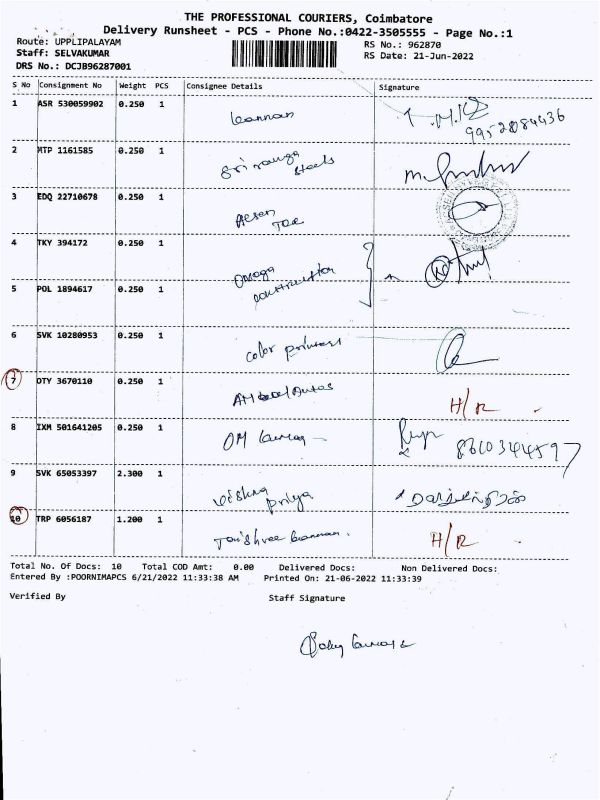 THE PROFESSIONAL COURIERS, Coimbatore
Delivery Runsheet - PCS - Phone No.:0422-3505555 - Page No.:1
Route: UPPLIPALAYAM
Staff: SELVAKUMAR
DRS No.: DCJB96287001
RS No.: 962870
RS Date: 21-Jun-2022
S No Consignment No Weight PCS Consignee Details Signature
1 ASR 530059902 0.250 1 kannan
9952084436
2 MTP 1161585 0.250 1 Sri ranga
steels
3 EDQ 22710678 0.250 1
4 TKY 394172 0.250 1 Omega
construction
5 POL 1894617 0.250 1
6 SVK 10280953 0.250 1 color printers
7 OTY 3670110 0.250 1 H/R
8 IXM 501641205 0.250 1 OM 8610344597
9 SVK 65053397 2.300 1 Vishnu
Priya
10 TRP 6056187 1.200 1 Jaishree kannan. H/R
Total No. Of Docs: 10 Total COD Amt: 0.00 Delivered Docs: Non Delivered Docs:
Entered By :POORNIMAPCS 6/21/2022 11:33:38 AM Printed On: 21-06-2022 11:33:39
Verified By Staff Signature